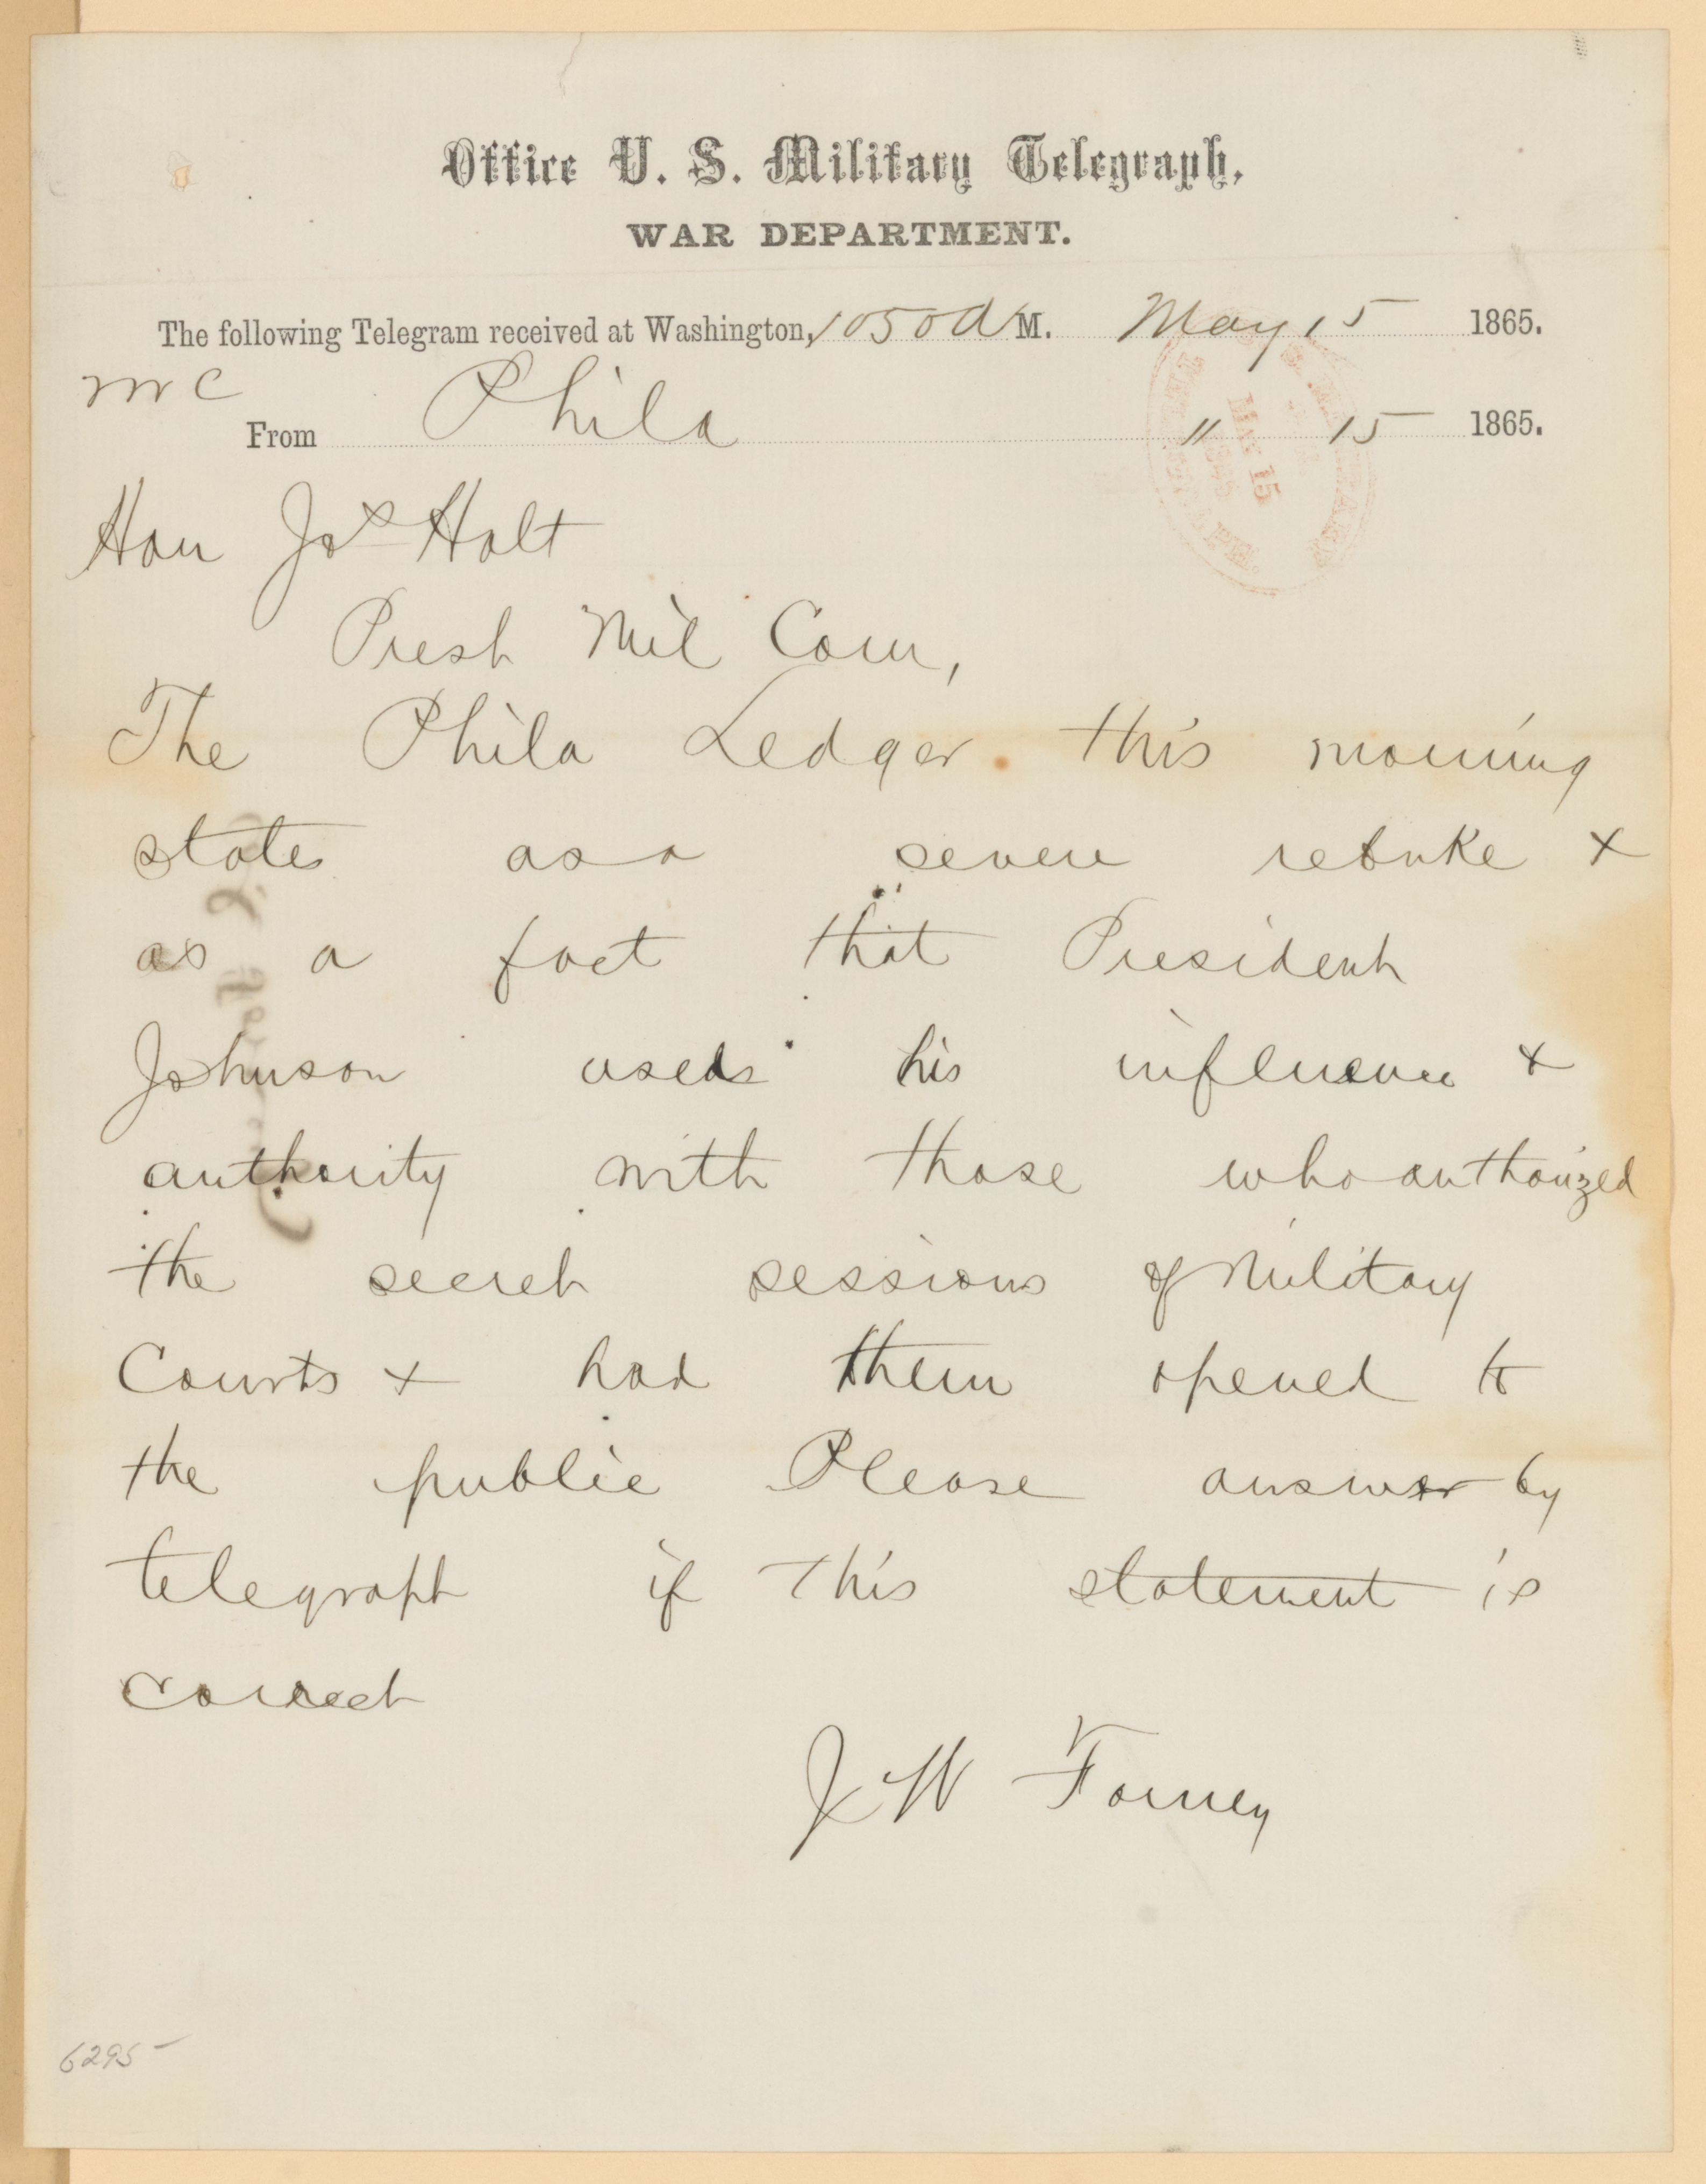 Office U. S. Military Telegraph,
WAR DEPARTMENT.
The following Telegram received at Washington, 1050 A M. May 15 1865.
From Phila " 15 1865.
Hon Jos Holt
Prest Mil Com,
The Phila Ledger this morning
states as a severe rebuke &
as a fact that President
Johnson used his influence &
authority with those who authorized
the secret sessions of Military
Courts & had them opened to
the public Please answer by
telegraph if this statement is
correct
J W Forney
MAY 15
6295